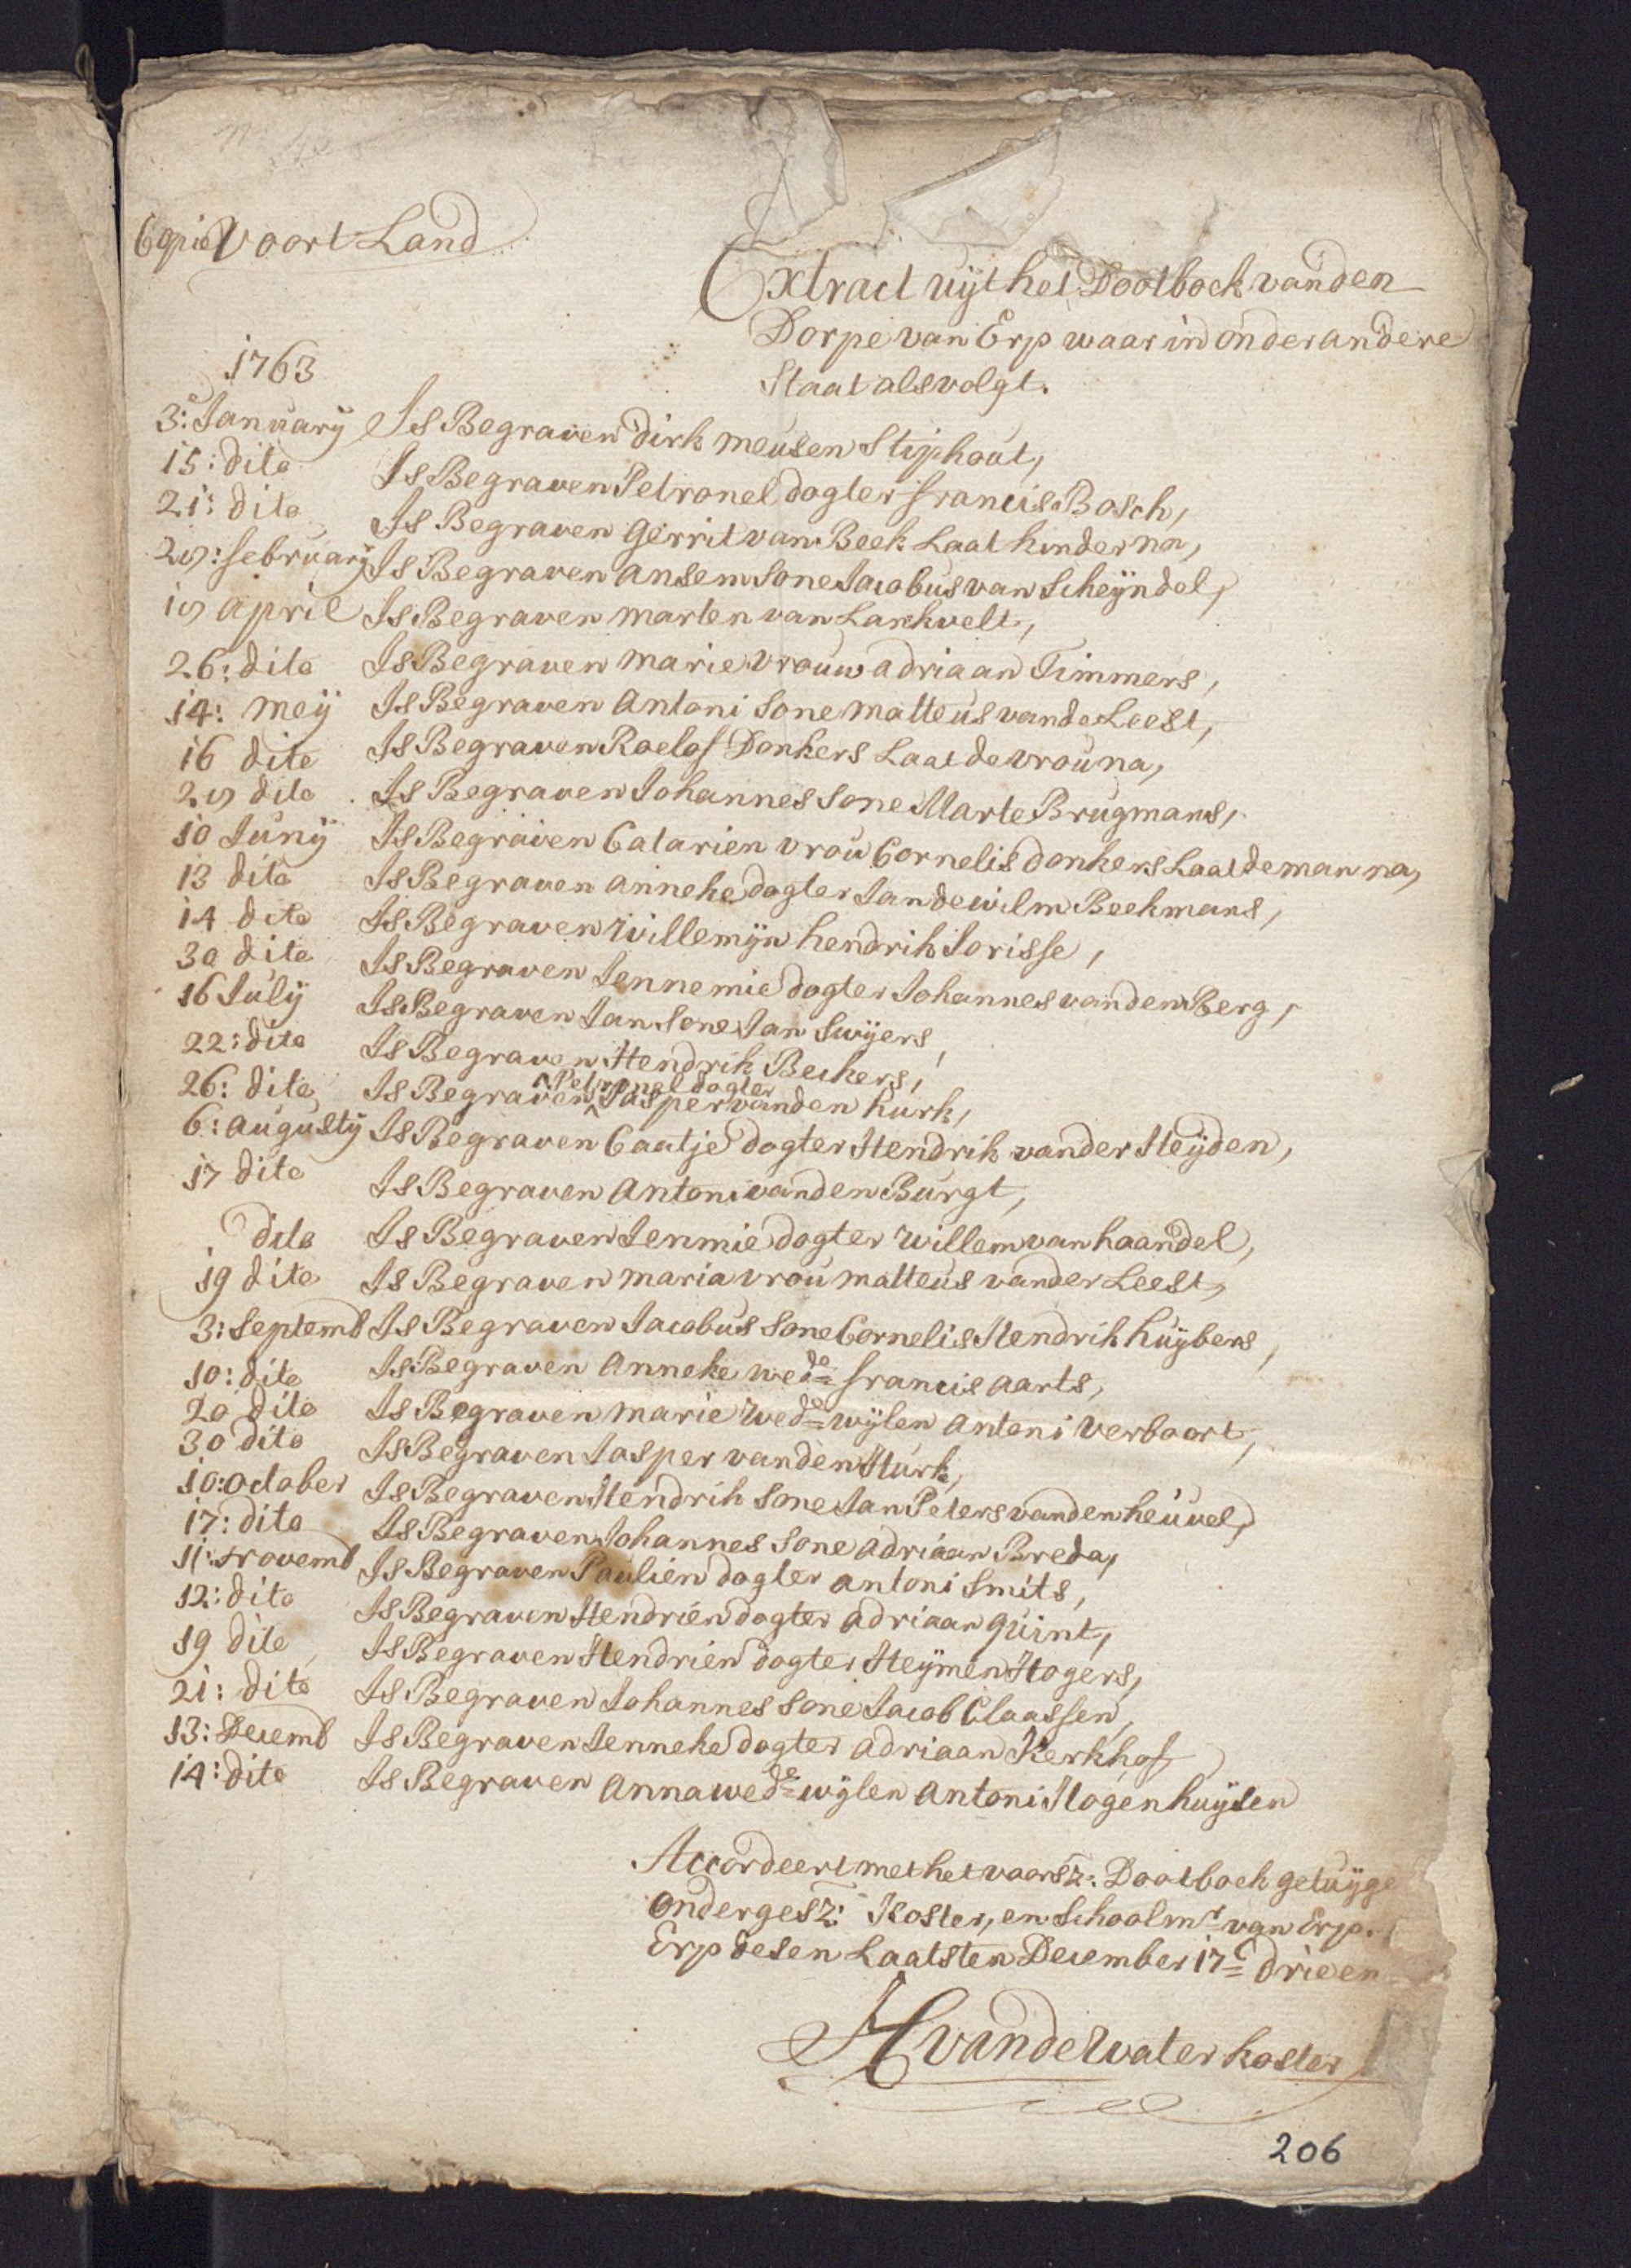 Copie Voort Land
Extract uyt het Dootboek vanden
Dorpe van Erp waar in onder andere
Staat als volgt.
1763
3: January Is Begraven dirk meusen Stiphout,
15: dito Is Begraven Petronel dogter francis Bosch,
21: dito Is Begraven Gerrit van Beek Laat kinder na,
29: february Is Begraven Ansem Sone Jacobus van Scheÿndel,
19 april Is Begraven marten van Lankvelt,
26: dito Is Begraven marie vrouw adriaan Timmers,
14: meÿ Is Begraven Antoni Sone matteus vande Leest,
16 dito Is Begraven Roelof Donkers Laat de vrou na,
29 dito Is Begraven Johannes Sone Marte Brugmans,
10 Junÿ Is Begraven Catarien vrou Cornelis donkers Laat de man na,
13 dito Is Begraven anneke dogter Jan de wilm Beekmans,
14 dito Is Begraven Willemÿn hendrik Jorisse,
30 dito Is Begraven Jennemie dogter Johannes vanden Berg,
16 Julÿ Is Begraven Jan Sone Jan Swÿers,
22: dito Is Begraven Hendrik Beckers,
26: dito Is Begraven ^Petronel dogter Jasper vanden hurk,
6: augustÿ Is Begraven Caatje dogter Hendrik vander Heÿden,
17 dito Is Begraven Antoni vanden Burgt,
dito Is Begraven Jenmie dogter willem van haandel,
19 dito Is Begraven maria vrou matteus vander Leest,
3: Septemb Is Begraven Jacobus Sone Cornelis Hendrik huÿbers,
10: dito Is Begraven Anneke wede francis aarts,
20 dito Is Begraven marie wede wÿlen Antoni verboort,
30 dito Is Begraven Jasper vanden Hurk,
10: october Is Begraven Hendrik Sone Jan Peters vanden heuvel,
17: dito Is Begraven Johannes Sone adriaan Breda,
11: novemb Is Begraven Paulien dogter antoni Smits,
12: dito Is Begraven Hendrien dogter adriaan quint,
19 dito Is Begraven Hendrien dogter Heÿmen Hogers,
21: dito Is Begraven Johannes Sone Jacob Claassen,
13: Decemb Is Begraven Jenneke dogter adriaan Kerkhof,
14: dito Is Begraven Anna wede wÿlen Antoni Hogenhuÿsen
Accordeert met het voorsz: Dootboek getuÿge
ondergesz: Koster, en Schoolmr van Erp.
Erp desen Laatsten December 17c drie en
H vande Water koster
206